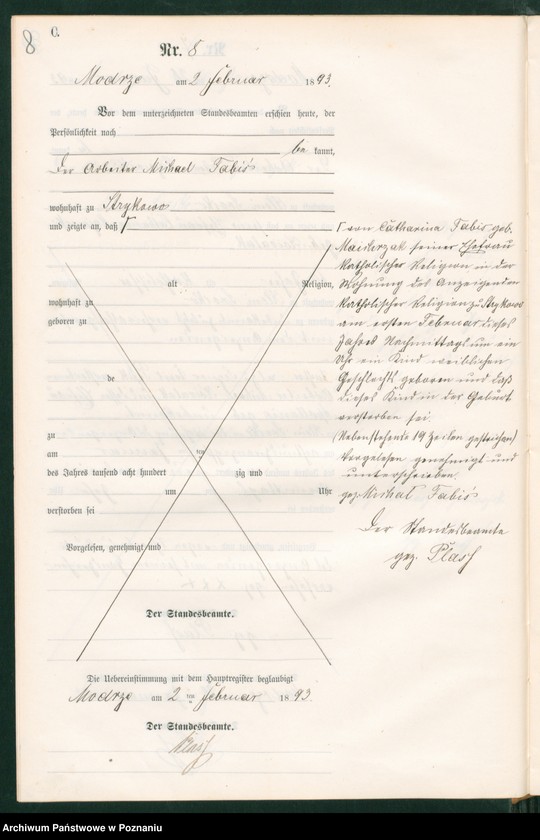 8
C.
Nr. 8
Modrze am 2 Februar 1893.
Vor dem unterzeichneten Standesbeamten erschien heute, der
Persönlichkeit nach
be kannt,
Der Arbeiter Michael Fabiś
wohnhaft zu Strykowo
und zeigte an, daß
alt Religion,
wohnhaft zu
geboren zu
de
zu
am ten
des Jahres tausend acht hundert zig und
um Uhr
verstorben sei
Vorgelesen, genehmigt und
Der Standesbeamte.
von Catharina Fabiś geb.
seiner Ehefrau
katholischer Religion in der
Wohnung des Anzeigenden
katholischer Religion zu Strykowo
am ersten Februar dieses
Jahres Nachmittags um ein
Uhr ein Kind weiblichen
Geschlechts geboren und daß
dieses Kind in der Geburt
verstorben sei.
(Nebenstehende 19 Zeilen gestrichen)
Vorgelesen genehmigt und
unterschrieben
gez Michał Fabiś
Der Standesbeamte
gez.
Die Uebereinstimmung mit dem Hauptregister beglaubigt
Modrze am 2 ten Februar 1893.
Der Standesbeamte.
Archiwum Państwowe w Poznaniu